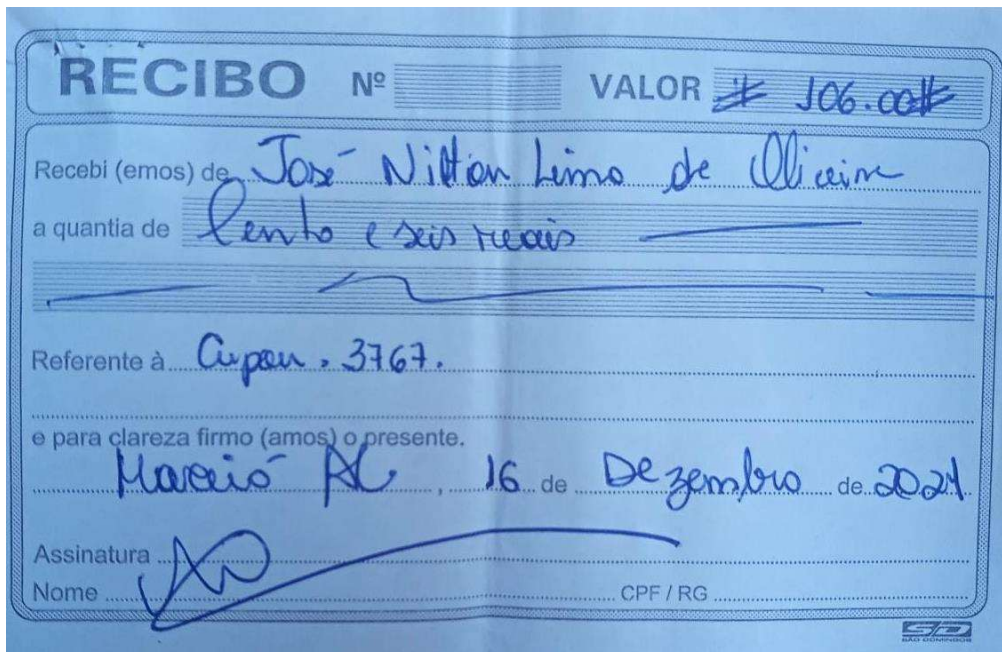 RECIBO Nº VALOR # 106.00#
Recebi (emos) de José Nilton Lima de Oliveira
a quantia de Cento e seis reais
Referente à Cupom . 3767.
e para clareza firmo (amos) o presente.
Maceió AL, 16 de Dezembro de 2021.
Assinatura
Nome CPF / RG
SD
SÃO DOMINGOS